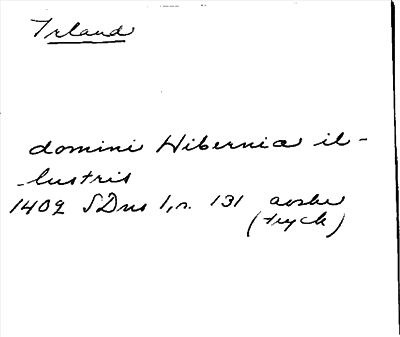 Irland
domini Hibernia il-
-lustris
1402 SDns 1, n. 131 avskr
(tryck)